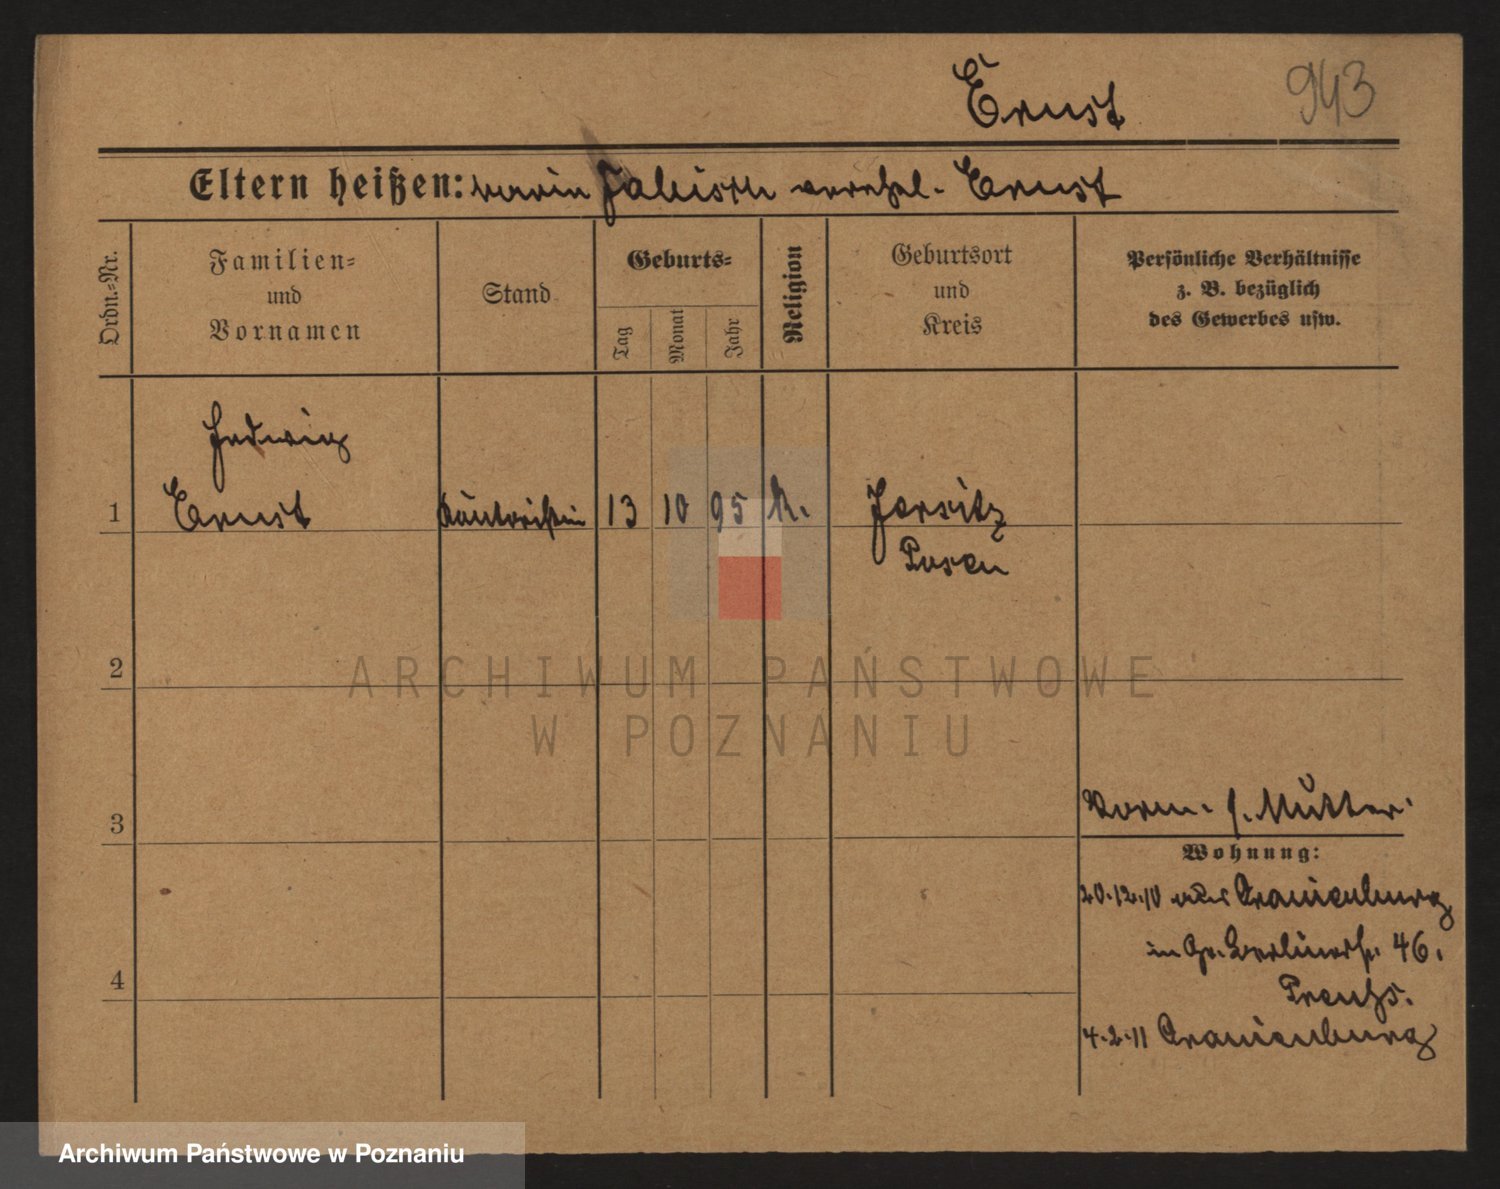 Ernst 943
Eltern heißen: Jakisch verehel. Ernst
Ordn.-Nr.
Familien-
und
Vornamen
Stand
Geburts-
Tag
Monat
Jahr
Religion
Geburtsort
und
Kreis
Persönliche Verhältnisse
z. B. bezüglich
des Gewerbes usw.
Hedwig
1 Ernst 13 10 95 K. Jersitz
Posen
2
ARCHIWUM PAŃSTWOWE
W POZNANIU
3
Vorm. s. Mutter.
Wohnung:
20.12.10 aus Oranienburg
in Gr. Berlinerstr. 46.
4
4.2.11 Oranienburg
Archiwum Państwowe w Poznaniu